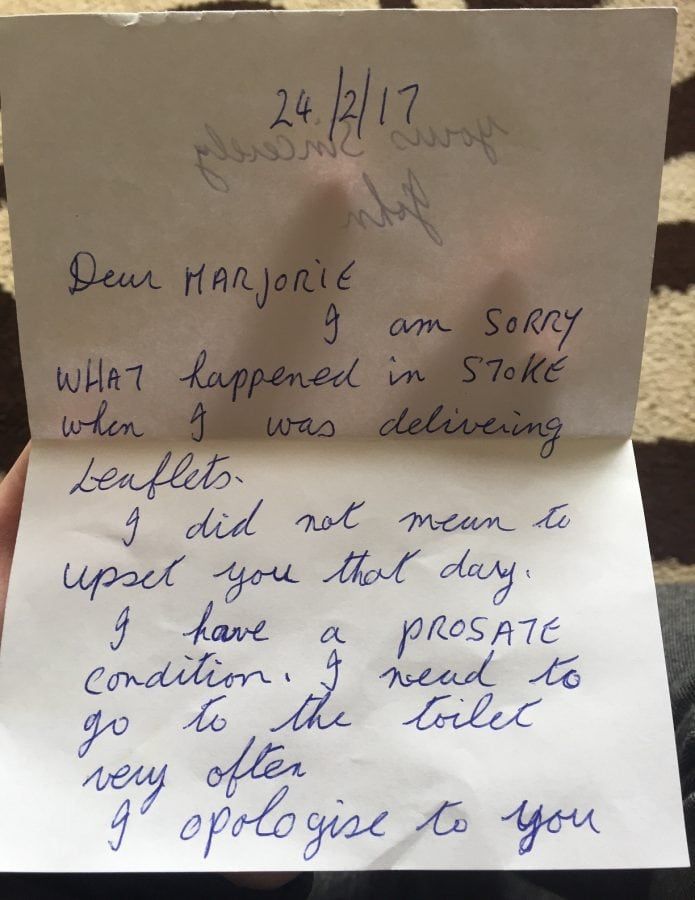 24/2/17
yours sincerely
John
Dear MARJORIE
I am SORRY
WHAT happened in STOKE
when I was delivering
Leaflets.
I did not mean to
upset you that day.
I have a PROSATE
condition. I nead to
go to the toilet
very often
I apologise to you